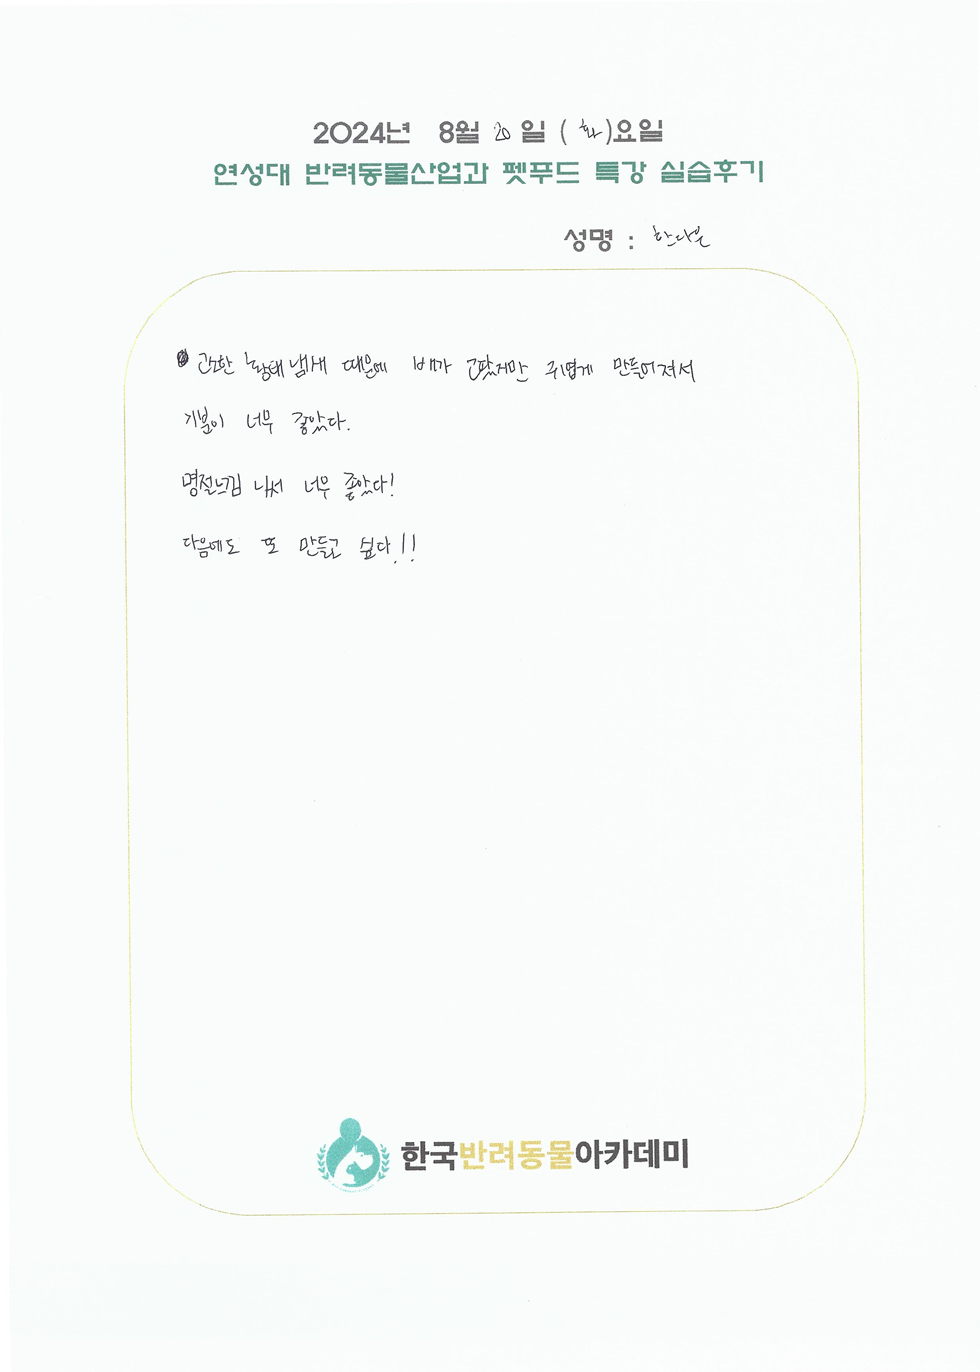 2024년 8월 20일 (화)요일
연성대 반려동물산업과 펫푸드 특강 실습후기
성명 : 한다분
고소한 황태냄새 때문에 배가 고팠지만 귀엽게 만들어져서
기분이 너무 좋았다.
명절느낌 나서 너무 좋았다!
다음에도 또 만들고 싶다!!
한국반려동물아카데미